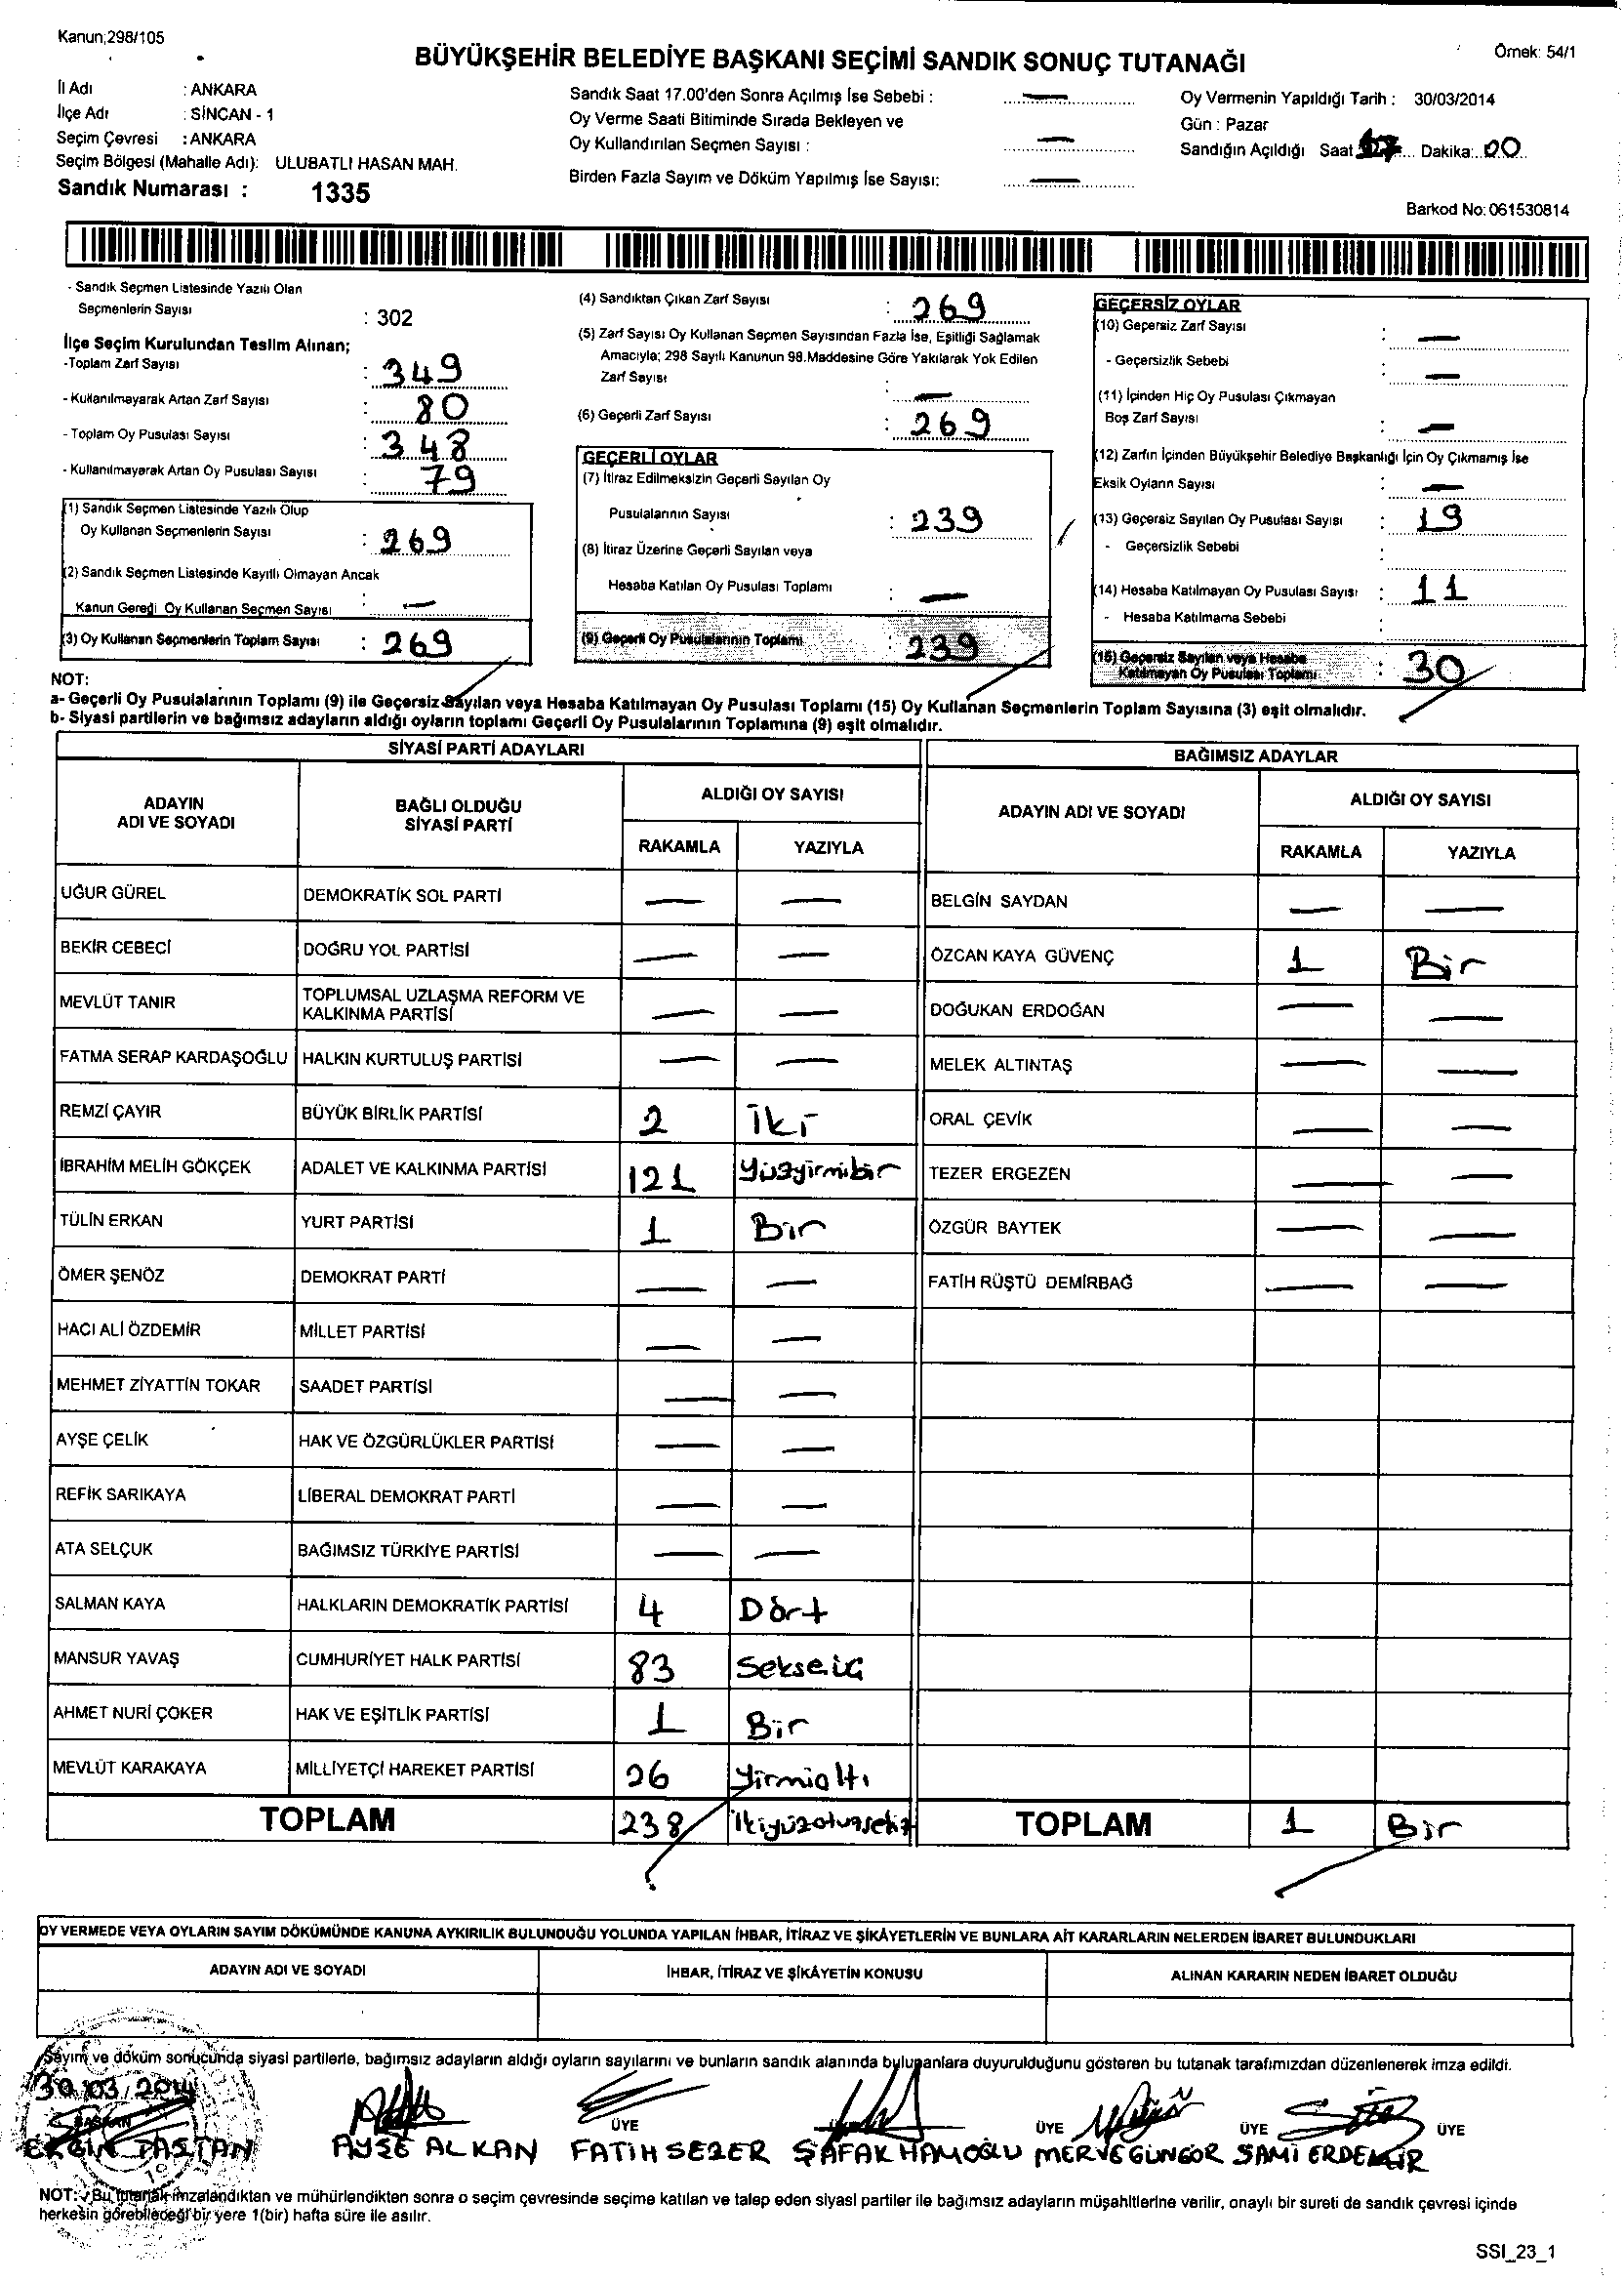 Kanun;298/105
Örnek: 54/1
BÜYÜKŞEHİR BELEDİYE BAŞKANI SEÇİMİ SANDIK SONUÇ TUTANAĞI
İl Adı : ANKARA
İlçe Adı : SİNCAN - 1
Seçim Çevresi : ANKARA
Seçim Bölgesi (Mahalle Adı): ULUBATLI HASAN MAH.
Sandık Numarası : 1335
Sandık Saat 17.00'den Sonra Açılmış İse Sebebi : —
Oy Verme Saati Bitiminde Sırada Bekleyen ve
Oy Kullandırılan Seçmen Sayısı : —
Birden Fazla Sayım ve Döküm Yapılmış İse Sayısı: —
Oy Vermenin Yapıldığı Tarih : 30/03/2014
Gün : Pazar
Sandığın Açıldığı Saat Dakika: 00
Barkod No: 061530814
- Sandık Seçmen Listesinde Yazılı Olan
Seçmenlerin Sayısı : 302
İlçe Seçim Kurulundan Teslim Alınan;
-Toplam Zarf Sayısı : 349
- Kullanılmayarak Artan Zarf Sayısı : 80
- Toplam Oy Pusulası Sayısı : 348
- Kullanılmayarak Artan Oy Pusulası Sayısı : 79
(1) Sandık Seçmen Listesinde Yazılı Olup
Oy Kullanan Seçmenlerin Sayısı : 269
(2) Sandık Seçmen Listesinde Kayıtlı Olmayan Ancak
Kanun Gereği Oy Kullanan Seçmen Sayısı : —
(3) Oy Kullanan Seçmenlerin Toplam Sayısı : 269
(4) Sandıktan Çıkan Zarf Sayısı : 269
(5) Zarf Sayısı Oy Kullanan Seçmen Sayısından Fazla İse, Eşitliği Sağlamak
Amacıyla; 298 Sayılı Kanunun 98.Maddesine Göre Yakılarak Yok Edilen
Zarf Sayısı : —
(6) Geçerli Zarf Sayısı : 269
GEÇERLİ OYLAR
(7) İtiraz Edilmeksizin Geçerli Sayılan Oy
Pusulalarının Sayısı : 239
(8) İtiraz Üzerine Geçerli Sayılan veya
Hesaba Katılan Oy Pusulası Toplamı : —
(9) Geçerli Oy Pusulalarının Toplamı : 239
GEÇERSİZ OYLAR
(10) Geçersiz Zarf Sayısı : —
- Geçersizlik Sebebi : —
(11) İçinden Hiç Oy Pusulası Çıkmayan
Boş Zarf Sayısı : —
(12) Zarfın İçinden Büyükşehir Belediye Başkanlığı İçin Oy Çıkmamış İse
Eksik Oyların Sayısı : —
(13) Geçersiz Sayılan Oy Pusulası Sayısı : 19
- Geçersizlik Sebebi :
(14) Hesaba Katılmayan Oy Pusulası Sayısı : 11
- Hesaba Katılmama Sebebi :
(15) Geçersiz Sayılan veya Hesaba
Katılmayan Oy Pusulası Toplamı : 30
NOT:
a- Geçerli Oy Pusulalarının Toplamı (9) ile Geçersiz Sayılan veya Hesaba Katılmayan Oy Pusulası Toplamı (15) Oy Kullanan Seçmenlerin Toplam Sayısına (3) eşit olmalıdır.
b- Siyasi partilerin ve bağımsız adayların aldığı oyların toplamı Geçerli Oy Pusulalarının Toplamına (9) eşit olmalıdır.
SİYASİ PARTİ ADAYLARI
ADAYIN ADI VE SOYADI BAĞLI OLDUĞU SİYASİ PARTİ ALDIĞI OY SAYISI
RAKAMLA YAZIYLA
UĞUR GÜREL DEMOKRATİK SOL PARTİ — —
BEKİR CEBECİ DOĞRU YOL PARTİSİ — —
MEVLÜT TANIR TOPLUMSAL UZLAŞMA REFORM VE KALKINMA PARTİSİ — —
FATMA SERAP KARDAŞOĞLU HALKIN KURTULUŞ PARTİSİ — —
REMZİ ÇAYIR BÜYÜK BİRLİK PARTİSİ 2 İki
İBRAHİM MELİH GÖKÇEK ADALET VE KALKINMA PARTİSİ 121 Yüzyirmibir
TÜLİN ERKAN YURT PARTİSİ 1 Bir
ÖMER ŞENÖZ DEMOKRAT PARTİ — —
HACI ALİ ÖZDEMİR MİLLET PARTİSİ — —
MEHMET ZİYATTİN TOKAR SAADET PARTİSİ — —
AYŞE ÇELİK HAK VE ÖZGÜRLÜKLER PARTİSİ — —
REFİK SARIKAYA LİBERAL DEMOKRAT PARTİ — —
ATA SELÇUK BAĞIMSIZ TÜRKİYE PARTİSİ — —
SALMAN KAYA HALKLARIN DEMOKRATİK PARTİSİ 4 Dört
MANSUR YAVAŞ CUMHURİYET HALK PARTİSİ 83
AHMET NURİ ÇOKER HAK VE EŞİTLİK PARTİSİ 1 Bir
MEVLÜT KARAKAYA MİLLİYETÇİ HAREKET PARTİSİ 26 Yirmialtı
TOPLAM 238 İkiyüzotuzsekiz
BAĞIMSIZ ADAYLAR
ADAYIN ADI VE SOYADI ALDIĞI OY SAYISI
RAKAMLA YAZIYLA
BELGİN SAYDAN — —
ÖZCAN KAYA GÜVENÇ 1 Bir
DOĞUKAN ERDOĞAN — —
MELEK ALTINTAŞ — —
ORAL ÇEVİK — —
TEZER ERGEZEN — —
ÖZGÜR BAYTEK — —
FATİH RÜŞTÜ DEMİRBAĞ — —
TOPLAM 1 Bir
OY VERMEDE VEYA OYLARIN SAYIM DÖKÜMÜNDE KANUNA AYKIRILIK BULUNDUĞU YOLUNDA YAPILAN İHBAR, İTİRAZ VE ŞİKÂYETLERİN VE BUNLARA AİT KARARLARIN NELERDEN İBARET BULUNDUKLARI
ADAYIN ADI VE SOYADI İHBAR, İTİRAZ VE ŞİKÂYETİN KONUSU ALINAN KARARIN NEDEN İBARET OLDUĞU
Sayım ve döküm sonucunda siyasi partilerle, bağımsız adayların aldığı oyların sayılarını ve bunların sandık alanında bulunanlara duyurulduğunu gösteren bu tutanak tarafımızdan düzenlenerek imza edildi.
30/03/2014
BAŞKAN ÜYE ÜYE ÜYE ÜYE
ERGİN TAŞTAN AYŞE ALKAN FATİH SEZER ŞAFAK HAMOĞLU MERVE GÜNGÖR SAMİ ERDEMİR
NOT: Bu tutanak imzalandıktan ve mühürlendikten sonra o seçim çevresinde seçime katılan ve talep eden siyasi partiler ile bağımsız adayların müşahitlerine verilir, onaylı bir sureti de sandık çevresi içinde
herkesin görebileceği bir yere 1(bir) hafta süre ile asılır.
SSI_23_1